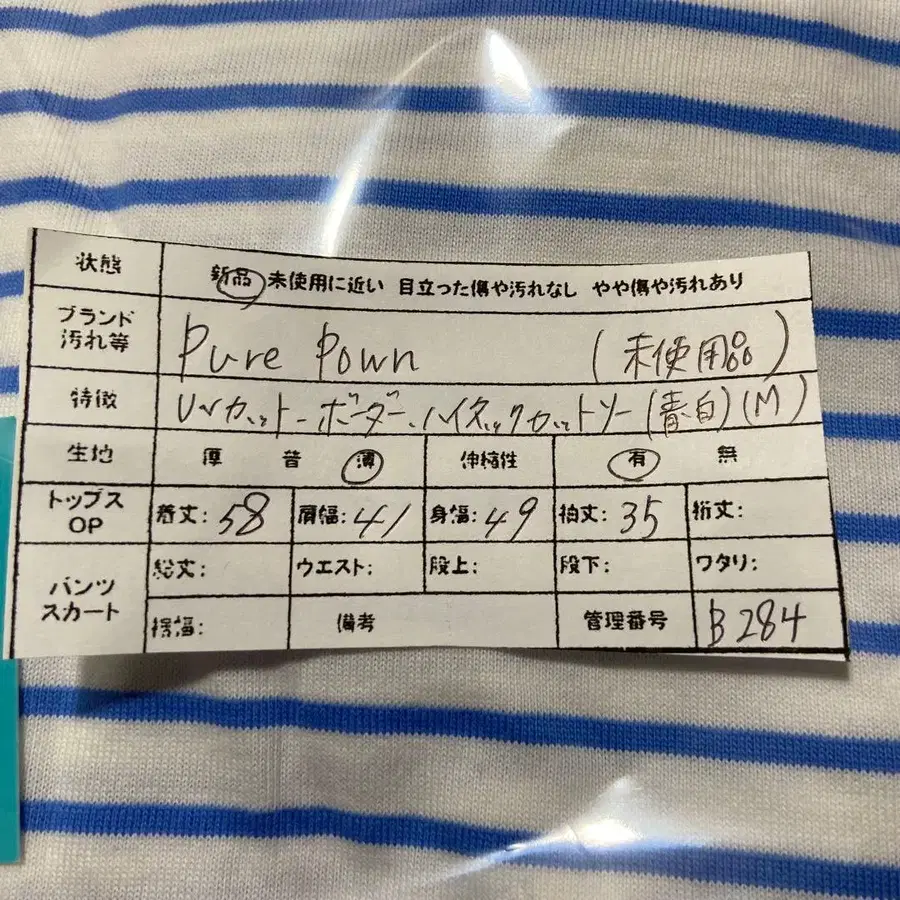 状態 新品 未使用に近い 目立った傷や汚れなし やや傷や汚れあり
ブランド
汚れ等 Pure Pown (未使用品)
特徴 UVカット-ボーダー.ハイネックカットソー(青白)(M)
生地 厚 普 薄 伸縮性 有 無
トップス
OP 着丈: 58 肩幅: 41 身幅: 49 袖丈: 35 裄丈:
パンツ
スカート 総丈: ウエスト: 股上: 股下: ワタリ:
裾幅: 備考 管理番号 B284